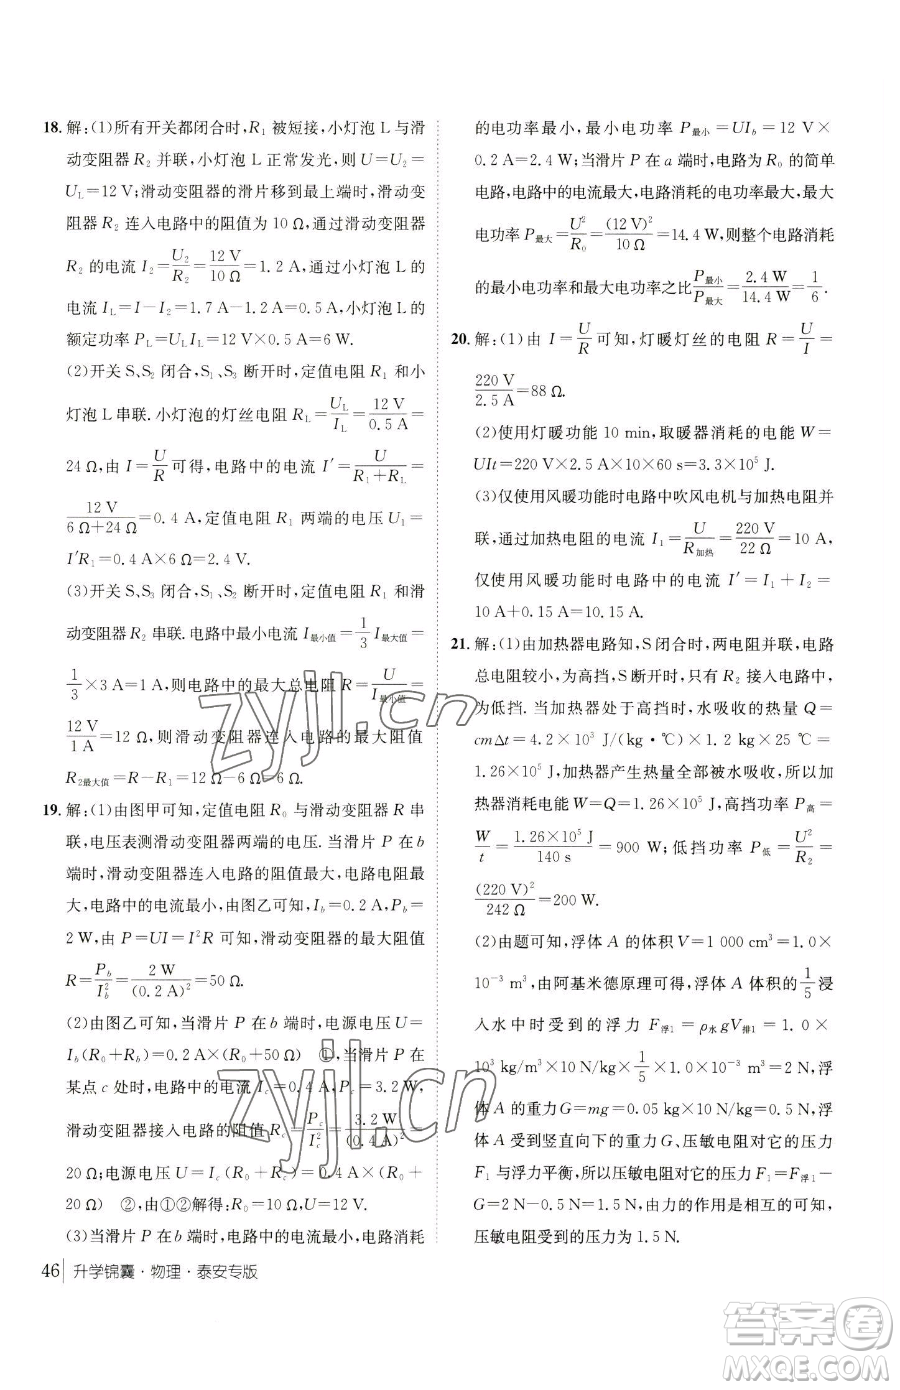 18. 解:(1)所有开关都闭合时,R₁ 被短接,小灯泡 L 与滑
动变阻器 R₂ 并联,小灯泡 L 正常发光,则 U=U₂
=U_L=12 V;滑动变阻器的滑片移到最上端时,滑动变阻
器 R₂ 连入电路中的阻值为 10 Ω,通过滑动变阻器
R₂ 的电流 I₂=U₂/R₂=12 V/10 Ω=1.2 A,通过小灯泡 L 的
电流 I_L=I-I₂=1.7 A-1.2 A=0.5 A,小灯泡 L 的
额定功率 P_L=U_LI_L=12 V×0.5 A=6 W.
(2)开关 S、S₂ 闭合,S₁、S₃ 断开时,定值电阻 R₁ 和小
灯泡 L 串联.小灯泡的灯丝电阻 R_L=U_L/I_L=12 V/0.5 A=
24 Ω,由 I=U/R可得,电路中的电流 I′=U/(R₁+R_L)=
12 V/(6 Ω+24 Ω)=0.4 A,定值电阻 R₁ 两端的电压 U₁=
I′R₁=0.4 A×6 Ω=2.4 V.
(3)开关 S、S₃ 闭合,S₁、S₂ 断开时,定值电阻 R₁ 与滑
动变阻器 R₂ 串联.电路中最小电流 I最小值=1/3 I最大值=
1/3×3 A=1 A,则电路中的最大总电阻 R=U/I最小值=
12 V/1 A=12 Ω,则滑动变阻器连入电路的最大阻值
R₂最大值=R-R₁=12 Ω-6 Ω=6 Ω.
19. 解:(1)由图甲可知,定值电阻 R₀ 与滑动变阻器 R 串
联,电压表测滑动变阻器两端的电压.当滑片 P 在 b
端时,滑动变阻器连入电路的阻值最大,总电阻最
大,电路中的电流最小,由图乙可知,I_b=0.2 A,P_b=
2 W,由 P=UI=I²R 可得,滑动变阻器的最大阻值
R=P_b/I_b²=2 W/(0.2 A)²=50 Ω.
(2)由图乙可知,当滑片 P 在 b 端时,电源电压 U=
I_b(R₀+R_b)=0.2 A×(R₀+50 Ω) ①,当滑片 P 在
某点 c 处时,电路中的电流 I_c=0.4 A,P_c=3.2 W,
滑动变阻器接入电路的阻值 R_c=P_c/I_c²=3.2 W/(0.4 A)²=
20 Ω;电源电压 U=I_c(R₀+R_c)=0.4 A×(R₀+
20 Ω) ②,由①②解得:R₀=10 Ω,U=12 V.
(3)当滑片 P 在 b 端时,电路中的电流最小,电路消耗
的电功率最小,最小电功率 P最小=UI_b=12 V×
0.2 A=2.4 W;当滑片 P 在 a 端时,电路为 R₀ 的简单
电路,电路中的电流最大,电路消耗的电功率最大,最大
电功率 P最大=U²/R₀=(12 V)²/10 Ω=14.4 W,则整个电路消耗
的最小电功率和最大电功率之比P最小/P最大=2.4 W/14.4 W=1/6.
20. 解:(1)由 I=U/R可知,灯暖灯丝的电阻 R=U/I=
220 V/2.5 A=88 Ω.
(2)使用灯暖功能 10 min,取暖器消耗的电能 W=
UIt=220 V×2.5 A×10×60 s=3.3×10⁵ J.
(3)仅使用风暖功能时电路中吹风电机与加热电阻并
联,通过加热电阻的电流 I₁=U/R加热=220 V/22 Ω=10 A,
仅使用风暖功能时电路中的电流 I′=I₁+I₂=
10 A+0.15 A=10.15 A.
21. 解:(1)由加热器电路知,S 闭合时,两电阻并联,电路
总电阻较小,为高挡,S 断开时,只有 R₂ 接入电路中,
为低挡.当加热器处于高挡时,水吸收的热量 Q=
cmΔt=4.2×10³ J/(kg·℃)×1.2 kg×25 ℃=
1.26×10⁵ J;加热器产生热量全部被水吸收,所以
加热器消耗电能 W=Q=1.26×10⁵ J,高挡功率 P高=
W/t=1.26×10⁵ J/140 s=900 W;低挡功率 P低=U²/R₂=
(220 V)²/242 Ω=200 W.
(2)由题可知,浮体 A 的体积 V=1 000 cm³=1.0×
10⁻³ m³,由阿基米德原理可得,浮体 A 体积的1/5浸
入水中时受到的浮力 F浮1=ρ水gV排1=1.0×
10³ kg/m³×10 N/kg×1/5×1.0×10⁻³ m³=2 N,浮
体 A 的重力 G=mg=0.05 kg×10 N/kg=0.5 N,浮
体 A 受到竖直向下的重力 G、压敏电阻对它的压力
F₁ 与浮力平衡,所以压敏电阻对它的压力 F₁=F浮1-
G=2 N-0.5 N=1.5 N,由力的作用是相互的可知,
压敏电阻受到的压力为 1.5 N.
46 升学锦囊·物理·泰安专版
zyjl.cn
zyjl.cn
答案圈
MXQE.COM